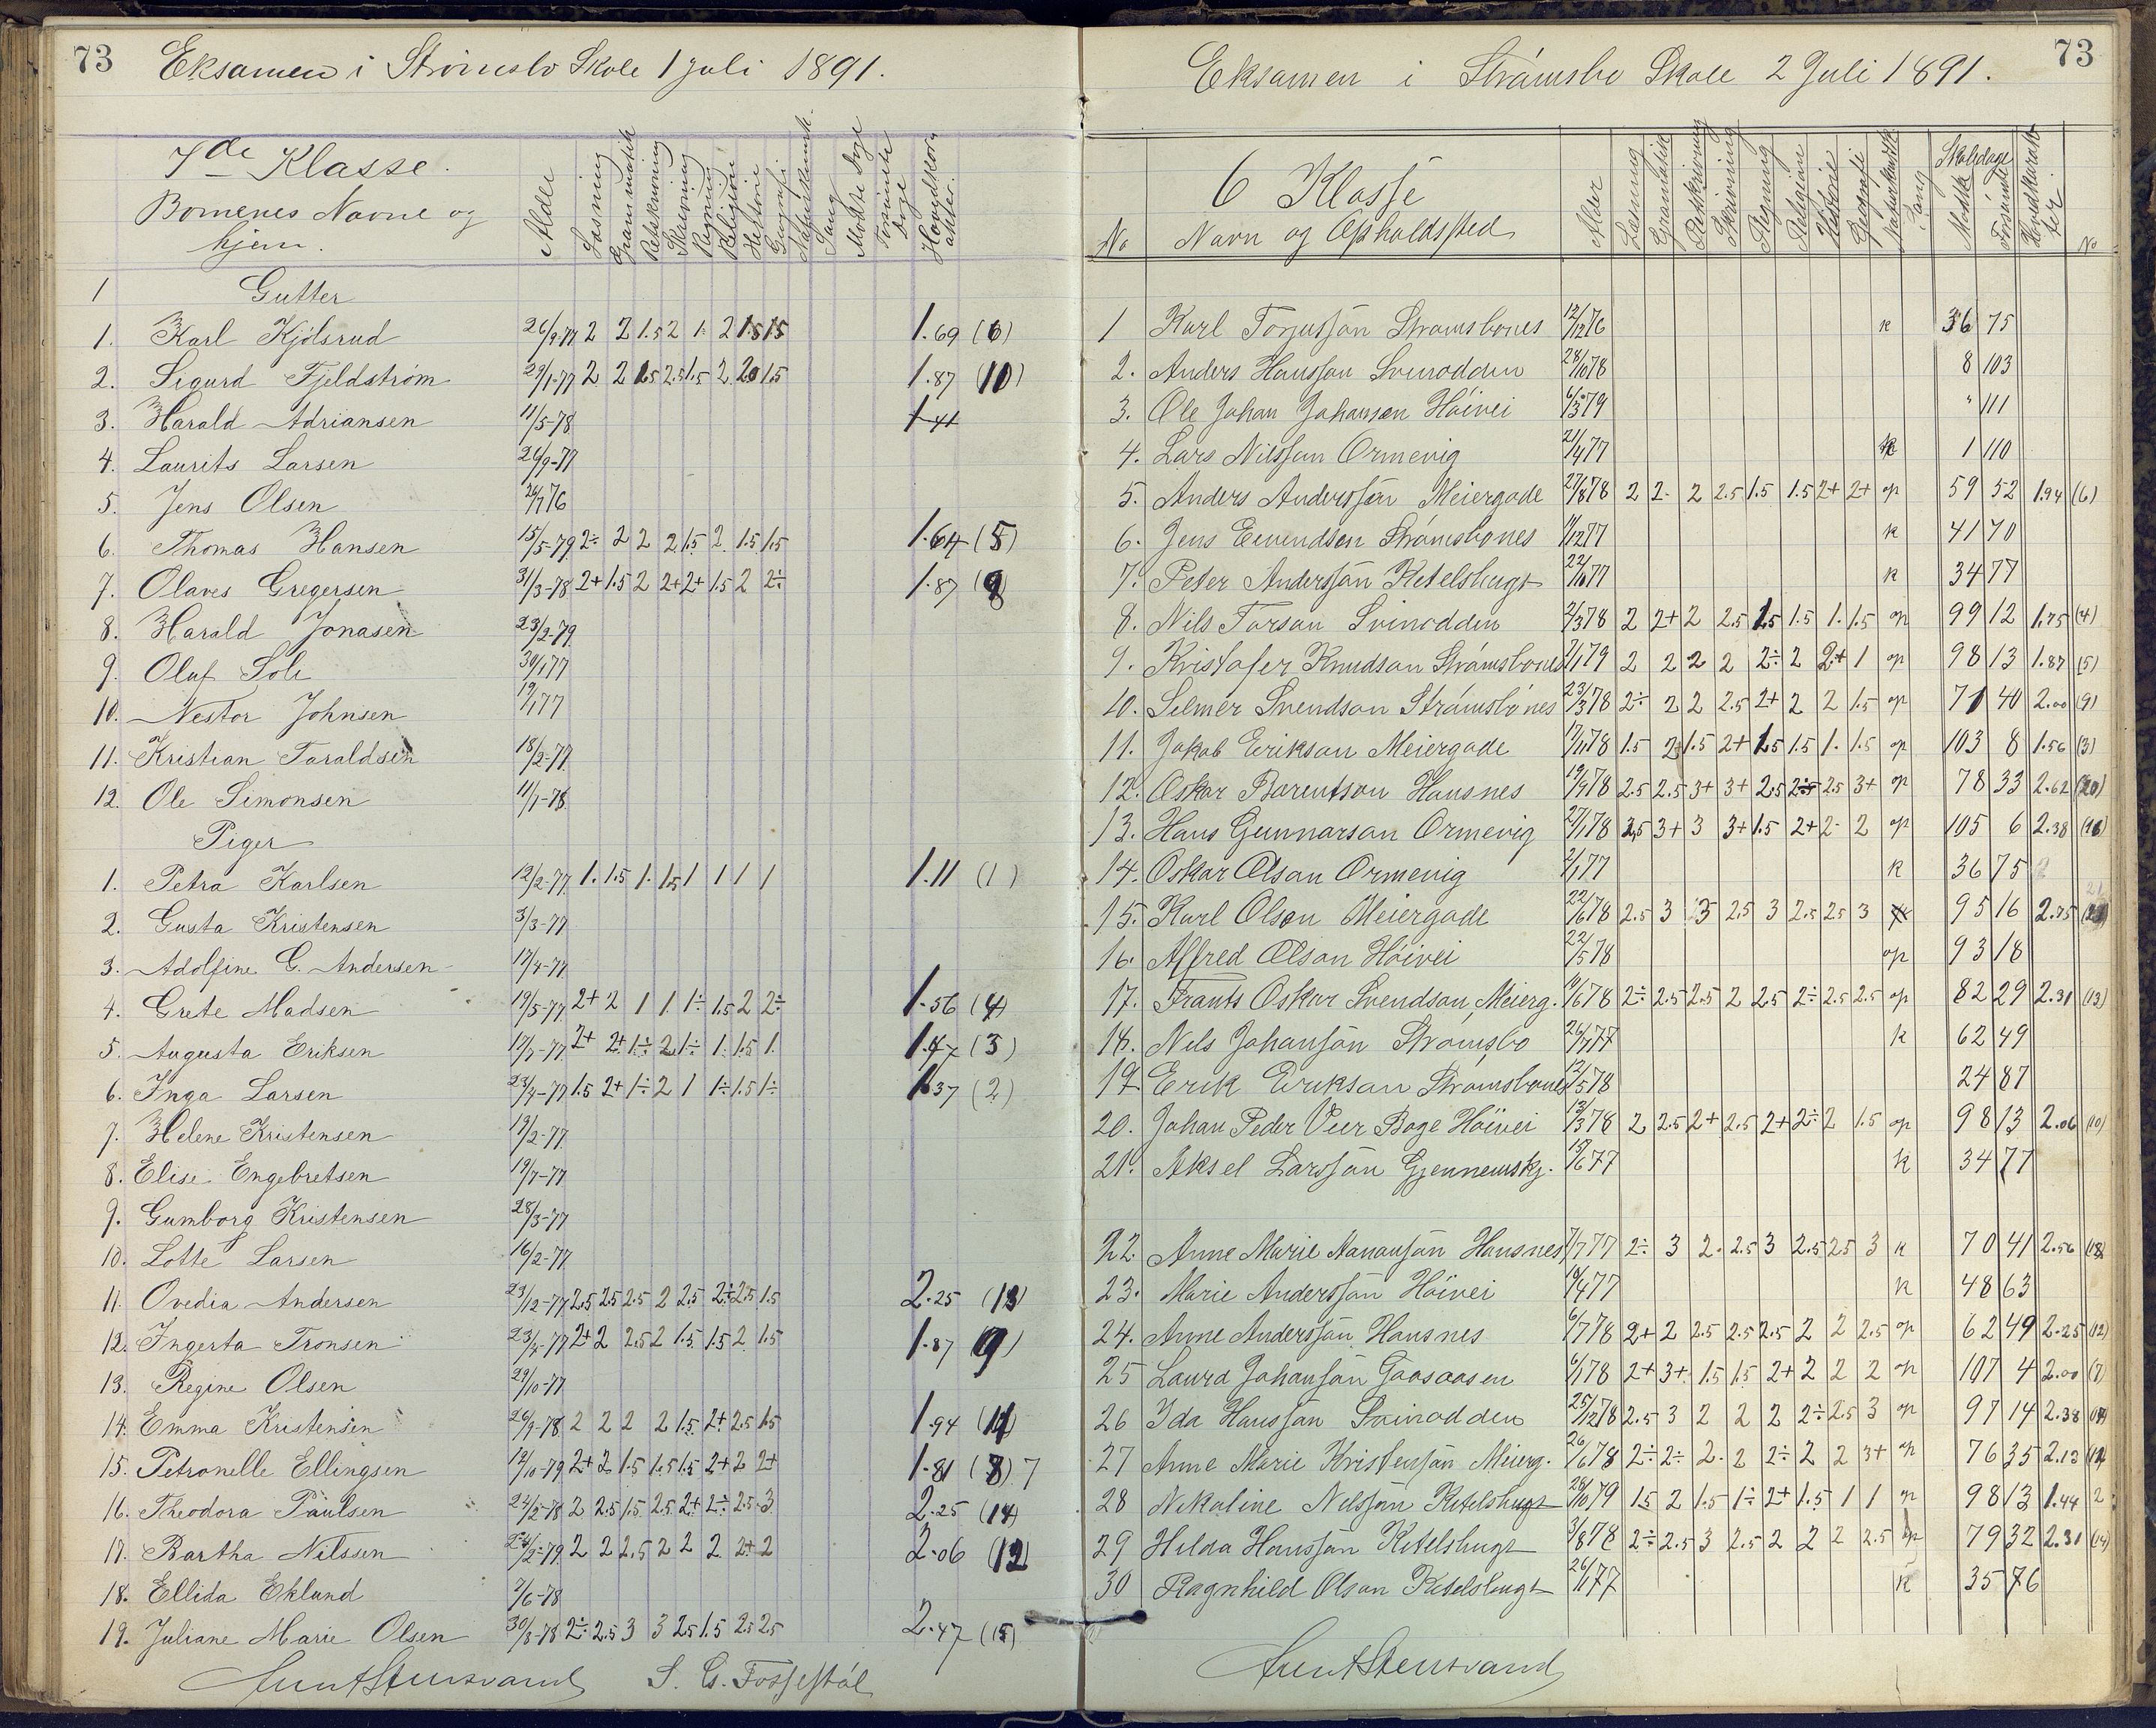 73 Eksamen i Strömsbo Skole 1 juli 1891.
7de Klasse.
Børnenes Navne og
hjem.
Alder
Læsning
Grammatik
Retskrivning
Skrivning
Regning
Religion
Historie
Geografi
Naturkundsk.
Sang
Mødte Dage
Forsømte Dage
Hovedkarakter.
1 Gutter
1. Karl Kjölsrud 26/9-77 2 2 1.5 2 1. 2 1.5 1.5 1.69 (6)
2. Sigurd Fjeldström 29/1-77 2 2 2.5 2.5 1.5 2 2.0 1.5 1.87 (10)
3. Harald Adriansen 11/5-78
4. Laurits Larsen 26/9-77
5. Jens Olsen 26/7 76
6. Thomas Hansen 15/5-79 2÷ 2 2 2 1.5 2 1.5 1.5 1.64 (5)
7. Olaves Gregersen 31/3-78 2+ 1.5 2 2+ 2+ 1.5 2 2÷ 1.87 (9)
8. Harald Jonasen 23/2-79
9. Oluf Soli 30/1 77
10. Nestor Johnsen 19/1 77
11. Kristian Taraldsen 18/2-77
12. Ole Simonsen 11/1-78
Piger
1. Petra Karlsen 12/2-77 1. 1.5 1. 1.5 1 1 1 1 1.11 (1)
2. Gusta Kristensen 3/3-77
3. Adolfine G. Andersen 17/4-77
4. Grete Madsen 19/5-77 2+ 2 1 1 1÷ 1.5 2 2÷ 1.56 (4)
5. Augusta Eriksen 17/7-77 2+ 2+ 1÷ 2 1÷ 1. 1.5 1. 1.47 (3)
6. Inga Larsen 23/4-77 1.5 2+ 1÷ 2 1 1÷ 1.5 1÷ 1.37 (2)
7. Helene Kristensen 19/2-77
8. Elise Engebretsen 19/7-77
9. Gumborg Kristensen 28/3-77
10. Lotte Larsen 16/2-77
11. Ovedia Andersen 23/12-77 2.5 2.5 2.5 2 2.5 2÷ 2.5 1.5 2.25 (13)
12. Ingerta Tronsen 23/7-77 2+ 2 2.5 2 1.5 1.5 2 1.5 1.87 (9)
13. Regine Olsen 29/10-77
14. Emma Kristensen 26/9-78 2 2 2 2 1.5 2+ 2.5 1.5 1.94 (11)
15. Petronelle Ellingsen 12/10-79 2+ 2 1.5 1.5 1.5 2+ 2 2+ 1.81 (8) 7
16. Theodora Paulsen 24/2-78 2 2.5 1.5 2.5 2+ 2÷ 2.5 3 2.25 (14)
17. Bartha Nilssen 24/2-79 2 2 2.5 2 2 2 2+ 2 2.06 (12)
18. Ellida Eklund 7/6-78
19. Juliane Marie Olsen 30/8-78 2÷ 2.5 3 3 2.5 1.5 2.5 2.5 2.47 (15)
S. G. Fossestöl
Eksamen i Strömsbo Skole 2 Juli 1891. 73
6 Klasse
No Navn og Opholdssted
Alder
Læsning
Gramatik
Retskrivning
Skrivning
Regning
Religion
Historie
Geografi
Naturkundsk.
Sang
Skoledage
Mødte
Forsømte
Hovedkarakter
No
1 Karl Torjussön Strömsbones 12/12 76 k 36 75
2. Anders Hanssön Svinodden 28/10 78 8 103
3. Ole Johan Johansen Höivei 6/3 79 " 111
4. Lars Nilssøn Ormevig 21/4 77 k 1 110
5. Anders Anderssön Meiergade 27/8 78 2 2- 2 2.5 1.5 1.5 2+ 2+ op 59 52 1.94 (6)
6. Jens Eivendsen Strömsbones 11/12 77 k 41 70
7. Peter Anderssön Ketelshugt 22/10 77 k 34 77
8. Nils Torson Svinodden 2/3 78 2 2+ 2 2.5 1.5 1.5 1. 1.5 op 99 12 1.75 (4)
9. Kristofer Knudson Strömsbones 7/1 79 2 2 2 2 2÷ 2 2+ 1 op 98 13 1.87 (5)
10. Selmer Svendson Strömsbönes 23/3 78 2÷ 2 2 2.5 2+ 2 2 1.5 op 71 40 2.00 (9)
11. Jakob Erikson Meiergade 17/11 78 1.5 2÷ 1.5 2+ 1.5 1.5 1. 1.5 op 103 8 1.56 (3)
12. Oskar Barentson Hansnes 19/9 78 2.5 2.5 3+ 3+ 2.5 2÷ 2.5 3+ op 78 33 2.62 (20)
13. Hans Gunnarson Ormevig 27/1 78 3.5 3+ 3 3+ 1.5 2+ 2- 2 op 105 6 2.38 (16)
14. Oskar Olson Ormevig 2/1 77 k 36 75
15. Karl Olson Meiergade 22/6 78 2.5 3 3 2.5 3 2.5 2.5 3 95 16 2.75
16. Alfred Olson Höivei 22/5 78 op 93 18
17. Frants Oskar Svendson, Meierg. 10/6 78 2÷ 2.5 2.5 2 2.5 2÷ 2.5 2.5 op 82 29 2.31 (13)
18. Nils Johansön Strömsbo 26/7 77 k 62 49
19. Erik Erikson Strömsbones 12/5 78 24 87
20. Johan Peder Veer Boge Höivei 13/3 78 2 2.5 2+ 2.5 2+ 2÷ 2 1.5 op 98 13 2.06 (10)
21. Aksel Larssön Gjennemskj. 19/6 77 k 34 77
22. Anne Marie Aanonsön Hansnes 7/7 77 2÷ 3 2. 2.5 3 2.5 2.5 3 k 70 41 2.56 (18)
23. Marie Anderssön Höivei 10/4 77 k 48 63
24. Anne Anderssön Hansnes 6/7 78 2+ 2 2.5 2.5 2.5 2 2 2.5 op 62 49 2.25 (12)
25 Laura Johansön Gaasaasen 6/1 78 2+ 3+ 1.5 1.5 2+ 2 2 2 op 107 4 2.00 (7)
26 Ida Hanssön Svinodden 25/12 78 2.5 3 2 2 2 2÷ 2.5 3 op 97 14 2.38
27 Anne Marie Kristensön Meierg. 26/6 78 2÷ 2÷ 2- 2 2÷ 2 2 3+ op 76 35 2.13
28 Nikoline Nilssön Ketelshugt 28/10 79 1.5 2 1.5 1÷ 2+ 1.5 1 1 op 98 13 1.44 2
29 Hilda Hanssön Ketelshugt 3/8 78 2÷ 2.5 3 2.5 2 2 2 2.5 op 79 32 2.31 (14)
30 Ragnhild Olson Ketelshugt 26/11 77 k 35 76